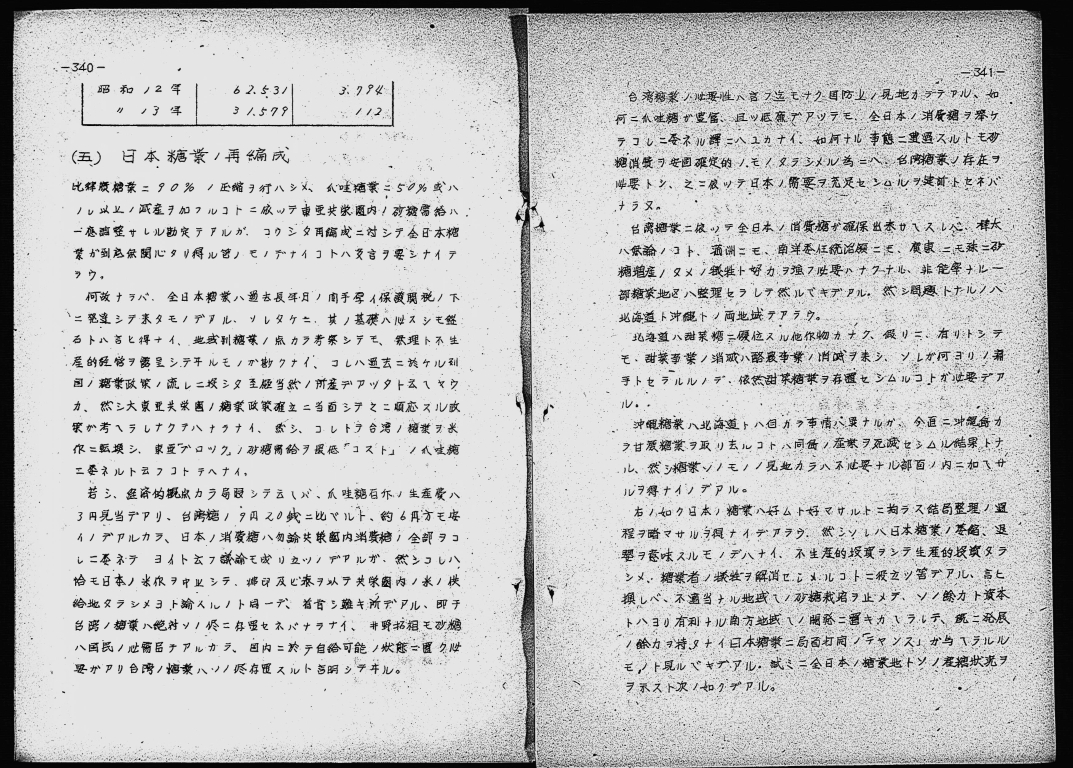 —340—
昭和12年 62.531 3.794
〃 13年 31.579 112
(五) 日本糖業ノ再編成
比律賓糖業ニ90%ノ圧縮ヲ行ハシメ、爪哇糖業ニ50%或ハ
ノレ以上ノ減産ヲ加フルコトニ依ッテ東亜共栄圏内ノ砂糖需給ハ
一応調整サレル勘定デアルガ、コウシタ再編成ニ対シテ全日本糖
業ガ到底無関心タリ得ル筈ノモノデナイコトハ多言ヲ要シナイデ
アラウ。
何故ナラバ、全日本糖業ハ過去長年月ノ間手厚イ保護関税ノ下
ニ発達シテ来タモノデアル、ソレダケニ、其ノ基礎ハ必ズシモ堅
固トハ言ヒ得ナイ、地域別糖業ノ点カラ考察シテモ、管理ト不生
産的経営ヲ露呈シテヰルモノガ尠クナイ、コレハ過去ニ於ケル列
国ノ糖業政策ノ流レニ棹シタ至極当然ノ所産デアッタト云ヘヤウ
カ、然シ大東亜共栄圏ノ糖業政策確立ニ当面シテ之ニ順応スル政
策ガ考ヘラレナクテハナラナイ、然シ、コレトテ台湾ノ糖業ヲ米
作ニ転換シ、東亜ブロックノ砂糖需給ヲ最低「コスト」ノ爪哇糖
ニ委ネルト云フコトデハナイ。
若シ、経済的観点カラ局限シテ云ヘバ、爪哇糖百斤ノ生産費ハ
3円見当デアリ、台湾糖ノ9円20銭ニ比ベルト、約6円方モ安
イノデアルカラ、日本ノ消費糖ハ勿論共栄圏内消費糖ノ全部ヲコ
レニ委ネテヨイト云フ議論モ成リ立ツノデアルガ、然シコレハ
恰モ日本ノ米作ヲ中止シテ、佛印及ビ泰ヲ以テ共栄圏内ノ米ノ供
給地タラシメヨト論ズルノト同一デ、首肯シ難キ所デアル、即チ
台湾ノ糖業ハ絶対ソノ侭ニ存置セネバナラナイ、
ハ国民ノ必需品デアルカラ、国内ニ於テ自給可能ノ状態ニ置ク必
要ガアリ台湾ノ糖業ハソノ侭存置スルト言明シテヰル。
—341—
台湾糖業ノ必要性ハ言フ迄モナク国防上ノ見地カラデアル、如
何ニ爪哇糖ガ豊富、且ツ低廉デアッテモ、全日本ノ消費糖ヲ挙ゲ
テコレニ委ネル譯ニハユカナイ、如何ナル事態ニ遭遇スルトモ砂
糖消費ヲ安固確定的ノモノタラシメル為ニハ、台湾糖業ノ存在ヲ
必要トシ、之ニ依ッテ日本ノ需要ヲ充足セシムルヲ建前トセネバ
ナラヌ。
台湾糖業ニ依ッテ全日本ノ消費糖ガ確保出来サヘスレバ、樺太
ハ勿論ノコト、満洲ニモ、南洋委任統治領ニモ、廣東ニモ殊ニ砂
糖増産ノタメノ犠牲ト努力ヲ強フ必要ハナクナル、非能率ナル一
部糖業地区ハ整理セラレテ然ルベキデアル。然シ問題トナルノハ
北海道ト沖縄トノ両地域デアラウ。
北海道ハ甜菜糖ニ優位スル他作物カナク、假リニ、有リトシテ
モ、甜菜事業ノ消滅ハ酪農事業ノ消滅ヲ来シ、ソレガ何ヨリノ痛
手トセラルルノデ、依然甜菜糖業ヲ存置セシムルコトガ必要デア
ル。
沖縄糖業ハ北海道トハ自カラ事情ハ異ナルガ、今直ニ沖縄島カ
ラ甘蔗糖業ヲ取リ去ルコトハ同島ノ産業ヲ死滅セシムル結果トナ
ル、然シ糖業ソノモノノ見地カラハ不必要ナル部面ノ内ニ加ヘサ
ルヲ得ナイノデアル。
右ノ如ク日本ノ糖業ハ好ムト好マサルトニ拘ラス結局整理ノ過
程ヲ踏マサルヲ得ナイデアラウ、然シソレハ日本糖業ノ萎縮、退
嬰ヲ意味スルモノデハナイ、不生産的投資ヲシテ生産的投資タラ
シメ、糖業者ノ犠牲ヲ解消セシメルコトニ役立ツ筈デアル、言ヒ
換レバ、不適当ナル地域ヘノ砂糖栽培ヲ止メテ、ソノ餘力ト資本
トハヨリ有利ナル南方地域ヘノ開発ニ置キカヘラレテ、既ニ発展
ノ餘力ヲ持タナイ日本糖業ニ局面打開ノ「チャンス」ガ与ヘラルル
モノト見ルベキデアル。試ミニ全日本ノ糖業地トソノ産糖状況ヲ
ヲ示スト次ノ如クデアル。